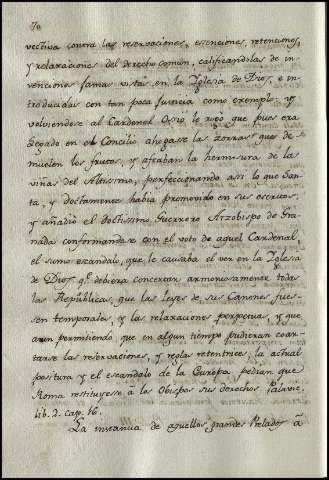 70
vectiva contra las reservaciones, esenciones, retenciones,
y relaxaciones del derecho comun, calificandolas de in-
venciones jamas vistas en la Yglesia de Dios, e in-
troducidas con tan poca Justicia como exemplo: y
volviendose al Cardenal Osio le rogo que pues era
Legado en el Concilio ahogase las zorras que de-
muelen los frutos, y afeaban la hermosura de la
viña del Altisimo, perfeccionando asi lo que San-
ta, y doctamente habia promovido en sus escritos,
y añadió el doctisimo Guerrero Arzobispo de Gra-
nada confirmandose con el voto de aquel Cardenal,
el sumo escandalo, que le causaba el ver en la Yglesia
de Dios qe. debiera concertar armoniosamente todas
las Republicas, que las leyes de sus Canones fue-
sen temporales, y las relaxaciones perpetuas, y que
aun permitiendo que en algun tiempo pudieran coar-
tarse las reservaciones, y reglas retentrices, la actual
positura y el escandalo de la Europa pedian que
Roma restituyese a los Obispos sus derechos Palavic.
lib. 2. cap. 16.
La instancia de aquellos grandes Prelados á